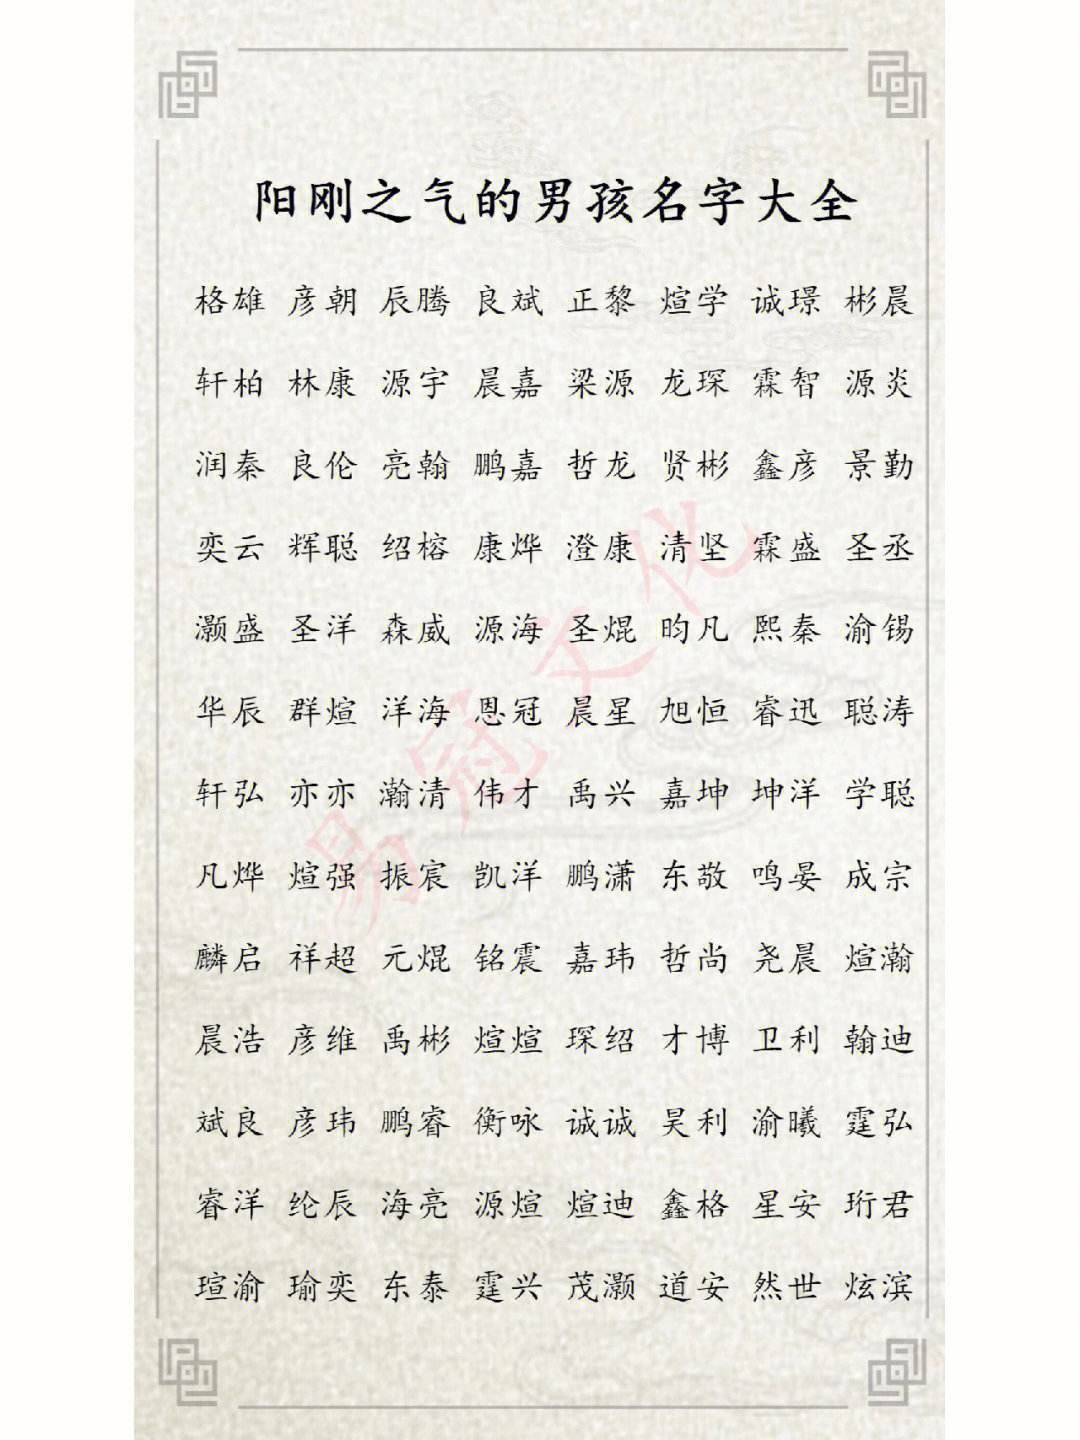 阳刚之气的男孩名字大全
格雄 彦朝 辰腾 良斌 正黎 煊学 诚璟 彬晨
轩柏 林康 源宇 晨嘉 梁源 龙琛 霖智 源炎
润秦 良伦 亮翰 鹏嘉 哲龙 贤彬 鑫彦 景勤
奕云 辉聪 绍榕 康烨 澄康 清坚 霖盛 圣丞
灏盛 圣洋 森威 源海 圣焜 昀凡 熙秦 渝锡
华辰 群煊 洋海 恩冠 晨星 旭恒 睿迅 聪涛
轩弘 亦亦 瀚清 伟才 禹兴 嘉坤 坤洋 学聪
凡烨 煊强 振宸 凯洋 鹏潇 东敬 鸣晏 成宗
麟启 祥超 元焜 铭震 嘉玮 哲尚 尧晨 煊瀚
晨浩 彦维 禹彬 煊煊 琛绍 才博 卫利 翰迪
斌良 彦玮 鹏睿 衡咏 诚诚 昊利 渝曦 霆弘
睿洋 纶辰 海亮 源煊 煊迪 鑫格 星安 珩君
瑄渝 瑜奕 东泰 霆兴 茂灏 道安 然世 炫滨
易冠文化